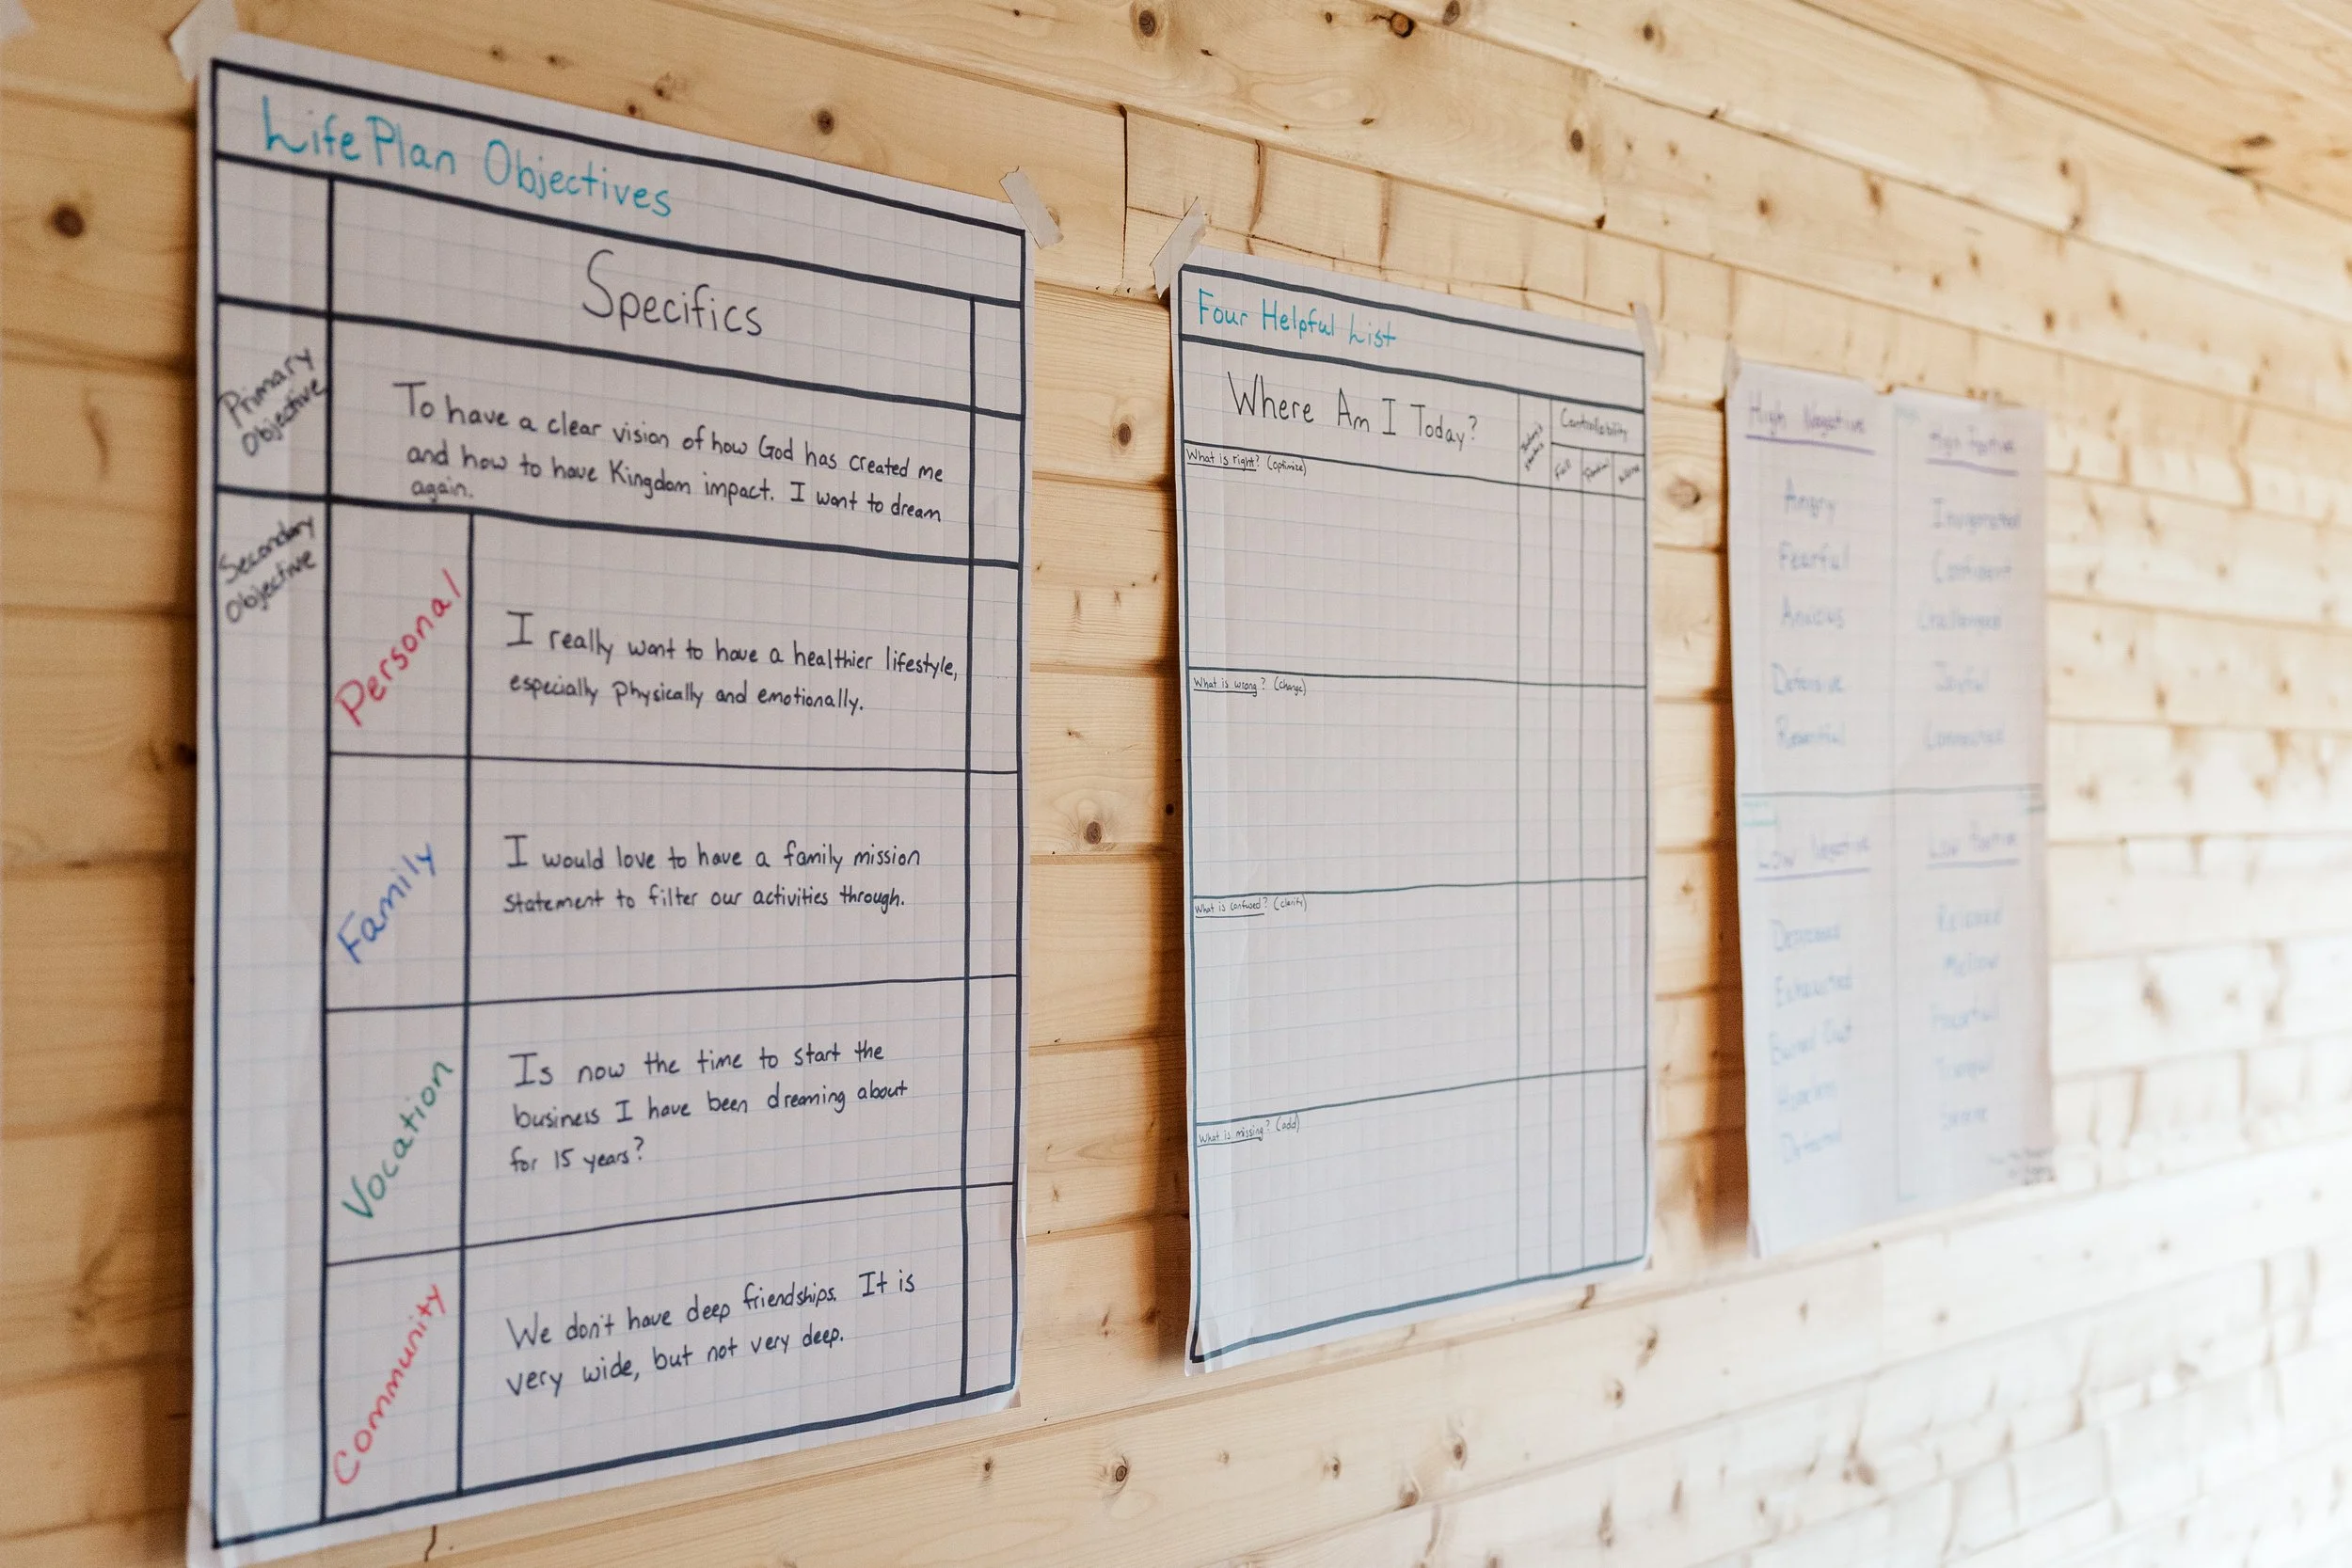 Life Plan Objectives
Specifics
Primary
Objective
To have a clear vision of how God has created me
and how to have Kingdom impact. I want to dream
again.
Secondary
Objective
Personal
I really want to have a healthier lifestyle,
especially physically and emotionally.
Family
I would love to have a family mission
statement to filter our activities through.
Vocation
Is now the time to start the
business I have been dreaming about
for 15 years?
Community
We don't have deep friendships. It is
very wide, but not very deep.
Four Helpful List
Where Am I Today?
Controllability
Full
Partial
What is right? (optimize)
What is wrong? (change)
What is confused? (clarify)
What is missing? (add)
High Negative
Angry
Fearful
Anxious
Defensive
Resentful
High Positive
Invigorated
Confident
Challenged
Joyful
Connected
Low Negative
Depressed
Exhausted
Burned Out
Hopeless
Defeated
Low Positive
Relaxed
Mellow
Peaceful
Tranquil
Serene